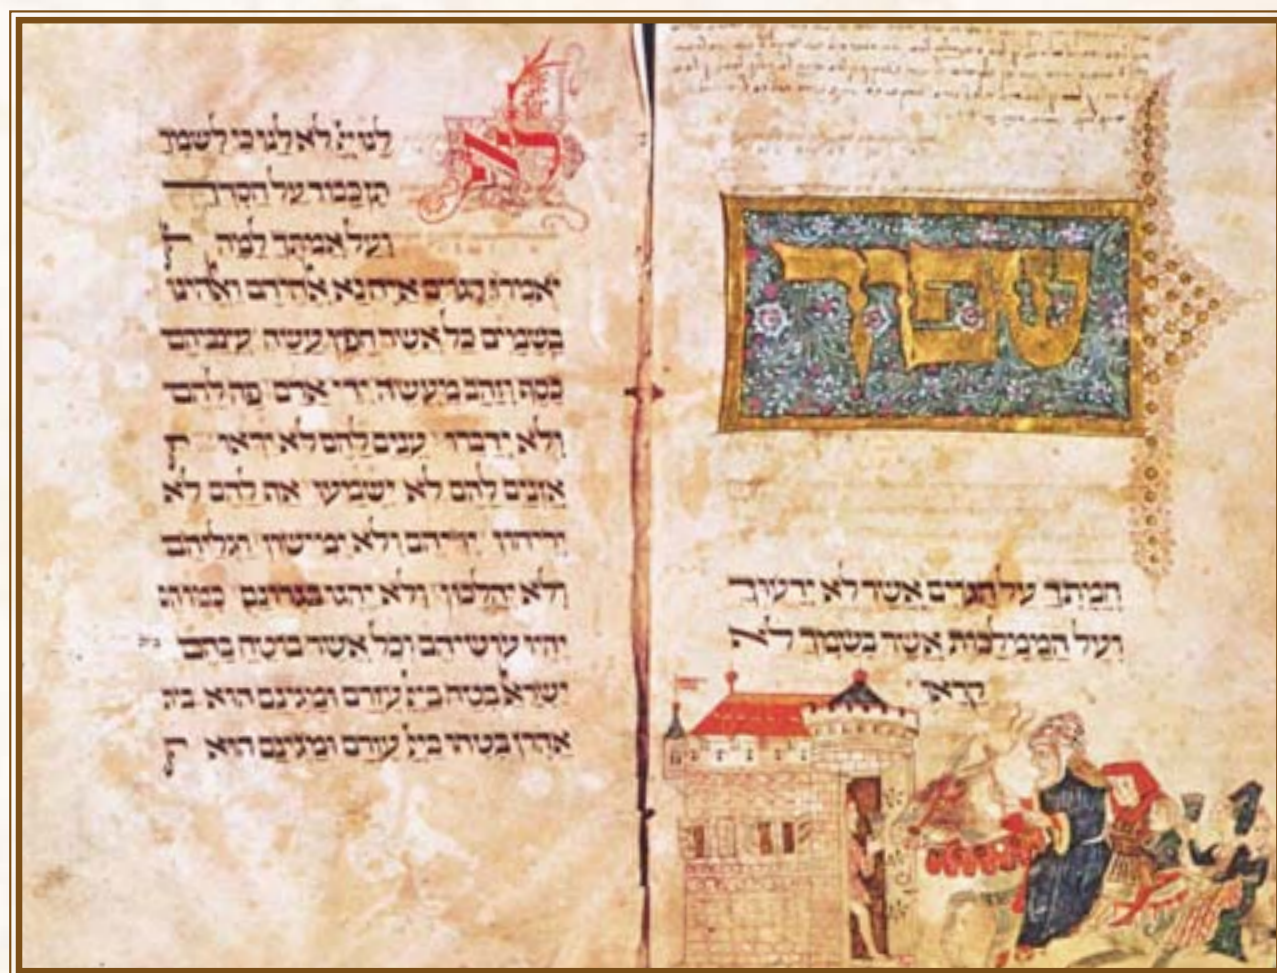 שפוך
חמתך על הגוים אשר לא ידעוך
ועל הממלכות אשר בשמך לא
קראו
לא לנו יי לא לנו כי לשמך
תן כבוד על חסדך
ועל אמתך למה
יאמרו הגוים איה נא אלהיהם ואלהינו
בשמים כל אשר חפץ עשה עצביהם
כסף וזהב מעשה ידי אדם פה להם
ולא ידברו עינים להם לא יראו
אזנים להם לא ישמעו אף להם לא
יריחון ידיהם ולא ימישון רגליהם
ולא יהלכון ולא יהגו בגרונם כמוהם
יהיו עושיהם וכל אשר בוטח בהם
ישראל בטח ביי עזרם ומגינם הוא בית
אהרן בטחו ביי עזרם ומגינם הוא